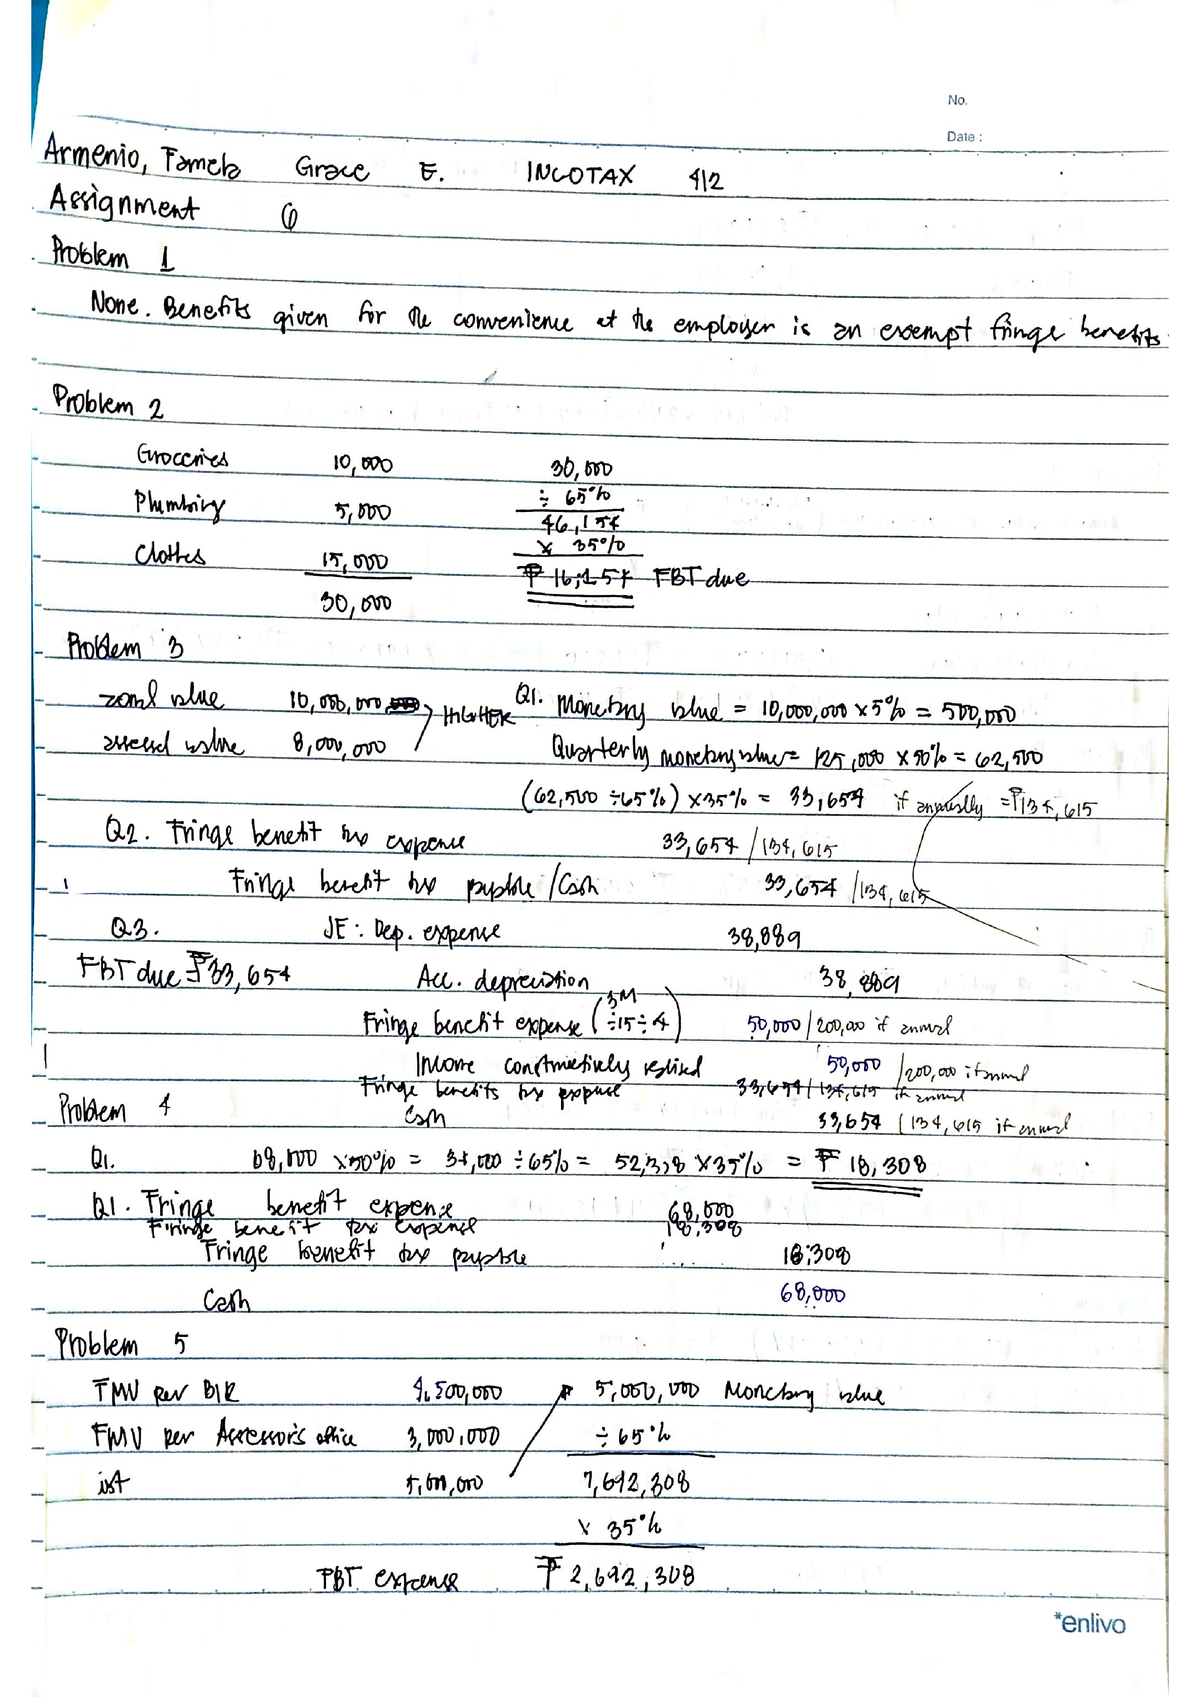 No.
Date :
Armenio, Famela Grace E. INCOTAX 412
Assignment 6
Problem 1
None. Benefits given for the convenience of the employer is an exempt fringe benefits.
Problem 2
Groceries 10,000 30,000
÷ 65%
Plumbing 5,000 46,154
x 35%
Clothes 15,000 ₱ 16,154 FBT due
30,000
Problem 3
zonal value 10,000,000 HIGHER Q1. Monetary value = 10,000,000 x 5% = 500,000
assessed value 8,000,000 Quarterly monetary value = 125,000 x 50% = 62,500
(62,500 ÷ 65%) x 35% = 33,654 if annually = ₱134,615
Q2. Fringe benefit tax expense 33,654 / 134,615
Fringe benefit tax payable / Cash 33,654 / 134,615
Q3. JE: Dep. expense 38,889
FBT due ₱33,654 Acc. depreciation 38,889
Fringe benefit expense (3M ÷15÷4) 50,000 / 200,000 if annual
Income constructively realized 50,000 / 200,000 if annual
Fringe benefits tax expense 33,654 / 134,615 if annual
Problem 4 Cash 33,654 / 134,615 if annual
Q1. 68,000 x 50% = 34,000 ÷ 65% = 52,308 x 35% = ₱ 18,308
Q1. Fringe benefit expense 68,000
Fringe benefit tax expense 18,308
Fringe benefit tax payable 18,308
Cash 68,000
Problem 5
FMV per BIR 4,500,000 5,000,000 Monetary value
FMV per Assessor's office 3,000,000 ÷ 65%
5,000,000 7,692,308
x 35%
FBT expense ₱ 2,692,308
*enlivo